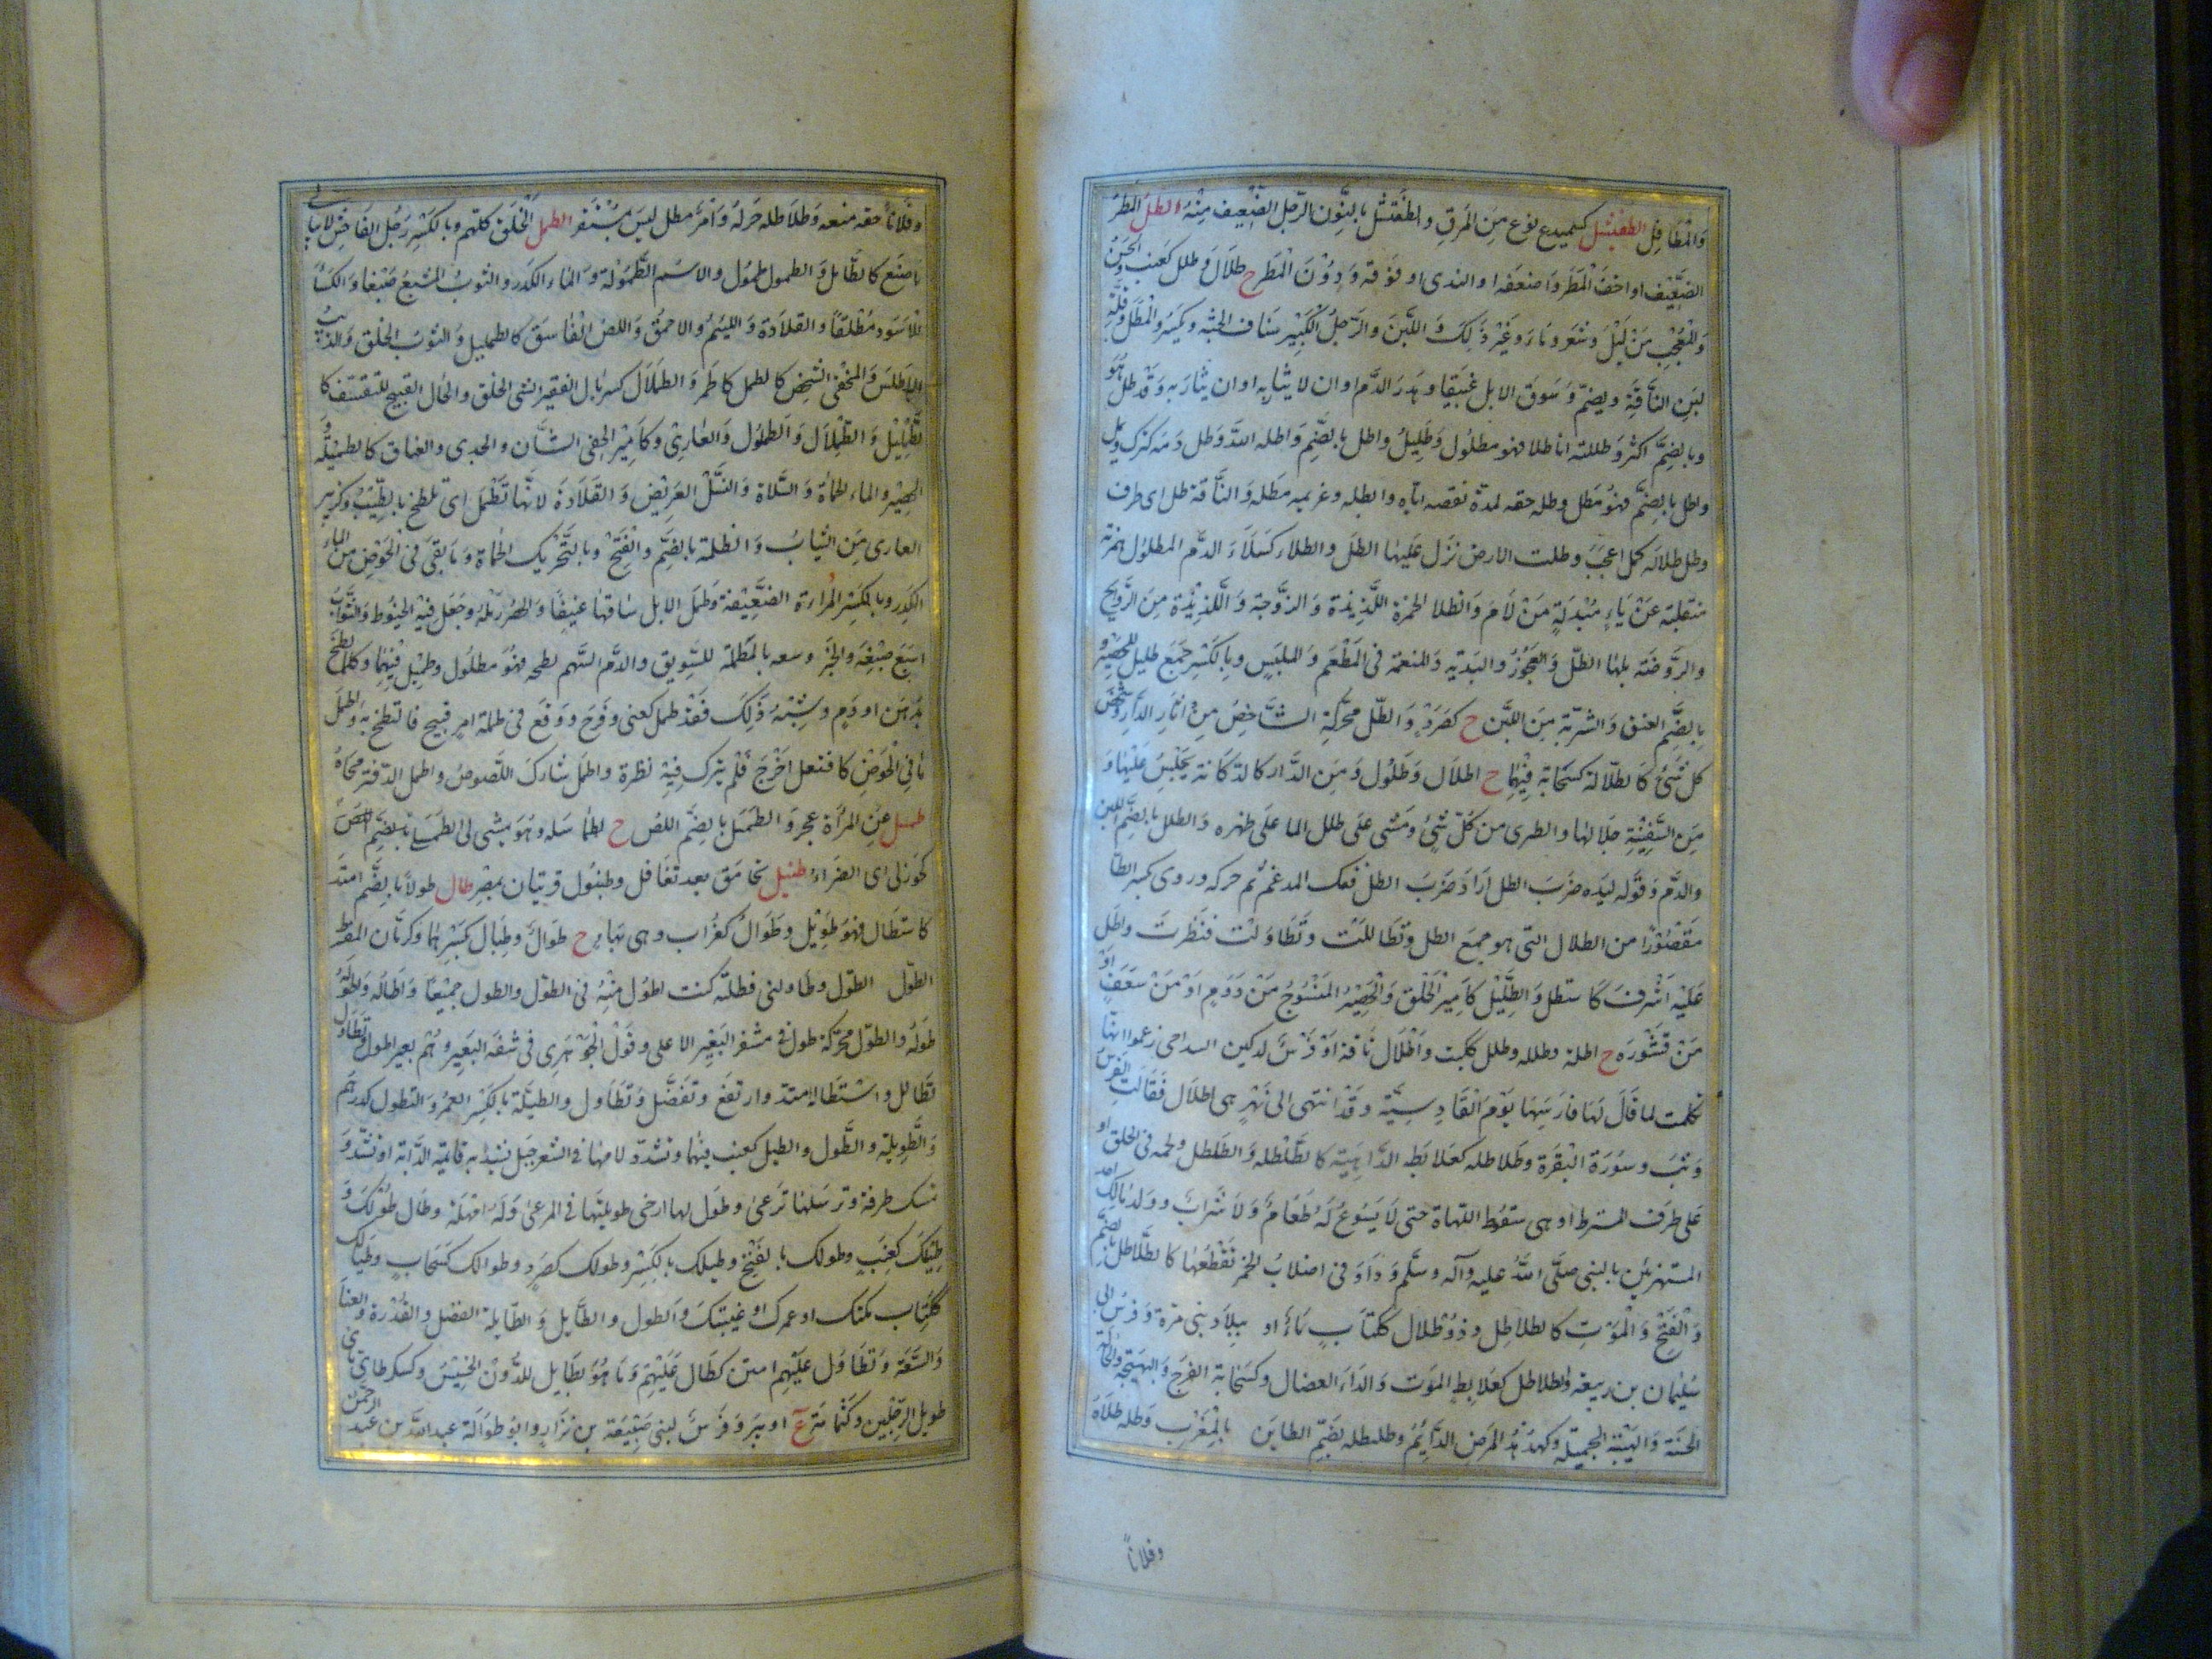 وَالْمَطَافِل الطفيشل كسميدع نوع مِنَ المَرَقِ والطفنشل بالنون الرجل الضعيف مِنْهُ الطل المَطَرُ
الضَّعِيْف او اخف الْمَطَر وَاضعفه او الندى او فَوْقَهُ وَدُوْنَ الْمَطَر ح طلَال وَ طلل كعنب وَالحَسَنُ
وَالمُعْجِب مِنْ لَيْل وَ شَعَر وماء وَغَيْرِ ذَلِكَ وَ اللَّبَنَ والرَّجلُ الْكَبِيْر
لَبَن النَاقَةِ ويضم وَ سَوق الابل عنيفا و هدر الدم او ان لا يثار به او ان يثار به وَ قد طل هُوَ
وبالضم اكثر وَ طللته انا طلا فهو مطلول وَطَلِيلٌ واطل بالضم وَاطله الله وَطل دمه
واطل بالضم فهو مُطل وطله حقه كمده نقصه اياه وابطله وغريمه مطله وَالناقة طل اى طرف
وطل طلاله كمل اعجب وطلت الارض نزل عليها الطل والطلاء كسلاء الدم المطلول همزته
منقلبة عَنْ يَاءٍ مُبْدَلَةٍ مَنْ لَام وَالطلة الخمرة اللَّذِيذة وَ الزَّوجة وَ اللَّذِيذَة مِنَ الرَّوَايح
والرَّوضَة بلها الطَلّ وَ العَجُوْزُ والبَذية وَالمنعمة فى الْمَطْعَمِ وَ الملبَس وَبِالْكَسْر جَمَع طليل للحصير و
بِالضَّم العنق وَ الشربة مِنَ اللَبَن ح كصُرَدٍ وَ الطَّلل محركة الشَّاخِصُ مِنْ اثَارِ الدَّارِ وَ شخص
كل شَىْءٍ كَالطلَالة كسَحَابة فِيْهِمَا ح اطلَال وَطُلُول وَ مِنَ الدَّار كالدكانة يُجْلَسُ عَلَيْهَا وَ
مِنَ السَّفِيْنَةِ جلَالها والطرى من كُلّ شىء وَ مشى عَلَى طلل الماء على ظهره وَ الطلل بالضم اللبن
والدَّم وَ قَوْله ليده ضَرَبَ الطلل اَرَادَ ضَرَبَ الطل ففك المدغم ثم حركه وروى كسر الطا
مَقْصُوْرًا من الطلال التى هو جمع الطل وَ تَطَاللَت و تَطَاوَلت فنَظَرت واطَل
عَلَيْهِ اَشْرفَ كَاستطل وَ الطَّلِيْل كاَمِيْر الخَلْق وَ الْحَصِيْرُ المَنْسُوجُ مِنْ دَوْمٍ اَوْ مِنْ سَعَفٍ اَوْ
مَنْ قُشُوْرِه ح اطلة وطلله وطلل ككتب وَ اَطْلَال نَاقة اَوْ فَرَسٌ لبكير الشداخى زعموا انها
تكلمت لما قَالَ لَهَا فارسها يَوْمَ الْقَادِسِيَّة وَقَدْ انتهى الى نَهْرٍ هى اطلَال فَقَالَتِ الفَرَسُ
وَثبَ و سُوْرَةِ البَقَرة وَ طَلاطلة كعلابطة الدَّاهِيَة كالطُّلطلة وَ الطَّلطل ولحمة فى الحلق او
عَلى طَرف المسترط او هى سقوط اللهاة حَتى لَا يَسُوغ لَهُ طَعَامٌ وَلَا شَرابٌ وَ وَلد مَالك احد
المستهزئين بالنبى صلى الله عليه وآله وسلم وَ داء فى اصلاب الحمر تَقْطَعُهَا كالطُّلَاطل بالضم
وَ الْفَتْح وَ الْمَوْت كالطلاطل وَ ذُوْ طَلَال كَكِتَابٍ مَاءٌ او ببلاد بنى مرة وَ فرس ابى
سُلَيْمَان بن رَبيعة وَ الطلاطل كعلابط المَوْت وَ الدَاء العضال وَ كسَحَابة الفَرَج وَ البَهْجَة وَ الحالة
الحسنة وَ الهيْئة الجميلة وَ كهدهد المرض الدَّائم وَ طليطلة بَضَم الطاءين بالمغرب وَ طله طلاه
وفلاناً
وفلاناً حقه منعه وَ طلاطله حَركهُ وَ امْر مطل لَيسَ بمستقر الطمل الخلق كلهم وبالكسر رجل الفاحش لا يبالى
ما صنع كالطامل وَ الطمول طمول والاسم الطمولة وَ الماء الكدر و الثوب المشبع صبغا وَ الكساء
الاسَود مُطْلَقًا و القلادة وَ اللئيم والاحمق وَ اللص الفاسق كالطمليل وَ الثوب الخلق وَ الذئب
الاطلس وَ المخفى الشخص كالطمل كطمر وَ الطملال كسربال الفقير السىء الخلق والحال القبيح المتقشف كا
لطمليل وَ الطملال وَ الطملول وَ العارى وَ كاَمِيْر الخفى الشان و الجدى و العناق كالطميلة و
الحصير و الماء الحماة وَ السلاة وَ النصل العريض وَ القلادة لانها تطمل اى تلطخ بالطيب وكزبير
العارى من الثياب وَ الطملة بالضم والفتح وبالتحريك الحماة وَ مَا بقى فى الحوض من الماء
الكدر و بالكسر المراة الضعيفة وَ طمل الابل ساقها عنيفا وَ الحصير رمله وجعل فيه الخيوط وَ الثوب
اسبغ صبغه و الخبز وسعه بالمطملة للشوبق و الدم السهم لطخه فهو مطمول و طميل فيهما وكلما لطخ
بدهن او دَمٍ و شبهه ذَلِكَ فَقَدْ طمل كعنى و فرح وَ وقع فى طملة امر قبيح فالتطخ به وَ اطمل
مَا فى الْحَوض كافتعل اخرج فلم يترك فيه قطرة و اطمل شارك اللصوص و اطمل الدفتر محاه
طمسل عن المراة عجز و الطمسل بالضم اللص ح طماسله و هو يمشى لى الطمسلى بالضم اللص
كخوزلى اى الضراء طنبل تحامق بعد تغافل و طنبول قريتان بمصر طال طولًا بالضم امتد
كاستطال فهو طويل و طوال كغراب و هى بهاء ح طوال وطيال بكسرهما وكرمان المفرط
الطول الطول وطاولنى فطلته كنت اطول منه فى الطول و الطول جميعًا وَ اطاله وَ اطوله
طوله والطول محركة طول فى مشفر البعير الاعلى و قول الجوهرى فى شفة البعير وهم بعير اطول و تطاول
تطالل و استطال امتد و ارتفع و تفضل و تطاول و الطيلة بالكسر العمر و التطول كدرهم
وَ الطويلة و الطول و الطيل كعنب فيهما وتشدد لامهما فى الشعر حبل يشد به قائمة الدابة او تشد و
تمسك طرفه وترسلها ترعى وطول لها ارخى طويلتها فى المرعى و له امهله وطال طولك و
طيلك كعنب وطولك بالفتح و طيلك بالكسر وطولك كصُرَد و طوالك كسحاب وطيالك
ككتاب مكثك او عمرك او غيبتك وَ الطول و الطايل وَ الطايلة الفضل و القدرة و الغنا
وَ السعة وَ تطاول عليهم امتن كطال عليهم وَ مَا هو بطايل للدون الخسيس و كسكر طائر مائى
طويل الرجلين و كثمامة ع او بير وَ فرس لبنى ضبيعة بن نزار و ابو طوالة عبد الله بن عبد الرحمن